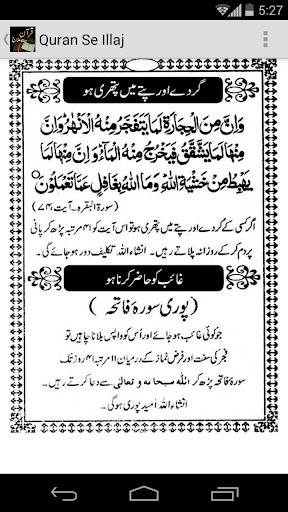 5:27
Quran Se Illaj
گردے اور پتے میں پتھری ہو
وَاِنَّ مِنَ الْحِجَارَةِ لَمَا يَتَفَجَّرُ مِنْهُ الْاَنْهٰرُ وَاِنَّ
مِنْهَا لَمَا يَشَّقَّقُ فَيَخْرُجُ مِنْهُ الْمَآءُ وَاِنَّ مِنْهَا لَمَا
يَهْبِطُ مِنْ خَشْيَةِ اللّٰهِ وَمَا اللّٰهُ بِغَافِلٍ عَمَّا تَعْمَلُوْنَ
(سورۃ البقرہ، آیت ۷۴)
اگر کسی کے گردے اور پتے میں پتھری ہو تو اس آیت کو ۴۱ مرتبہ پڑھ کر پانی
پر دم کر کے روزانہ پلاتے رہیں۔ انشاء اللہ تکلیف دور ہو جائے گی۔
غائب کو حاضر کرنا ہو
(پوری سورۃ فاتحہ)
جو کوئی غائب ہو جائے اور اُس کو واپس بلانا چاہیں تو
فجر کی سنت اور فرض نماز کے درمیان ۴۱ مرتبہ ۴۰ روز تک
سورۃ فاتحہ پڑھ کر اللہ سبحانہ و تعالٰی سے دعا کرتے رہیں۔
انشاء اللہ اُمید پوری ہوگی۔